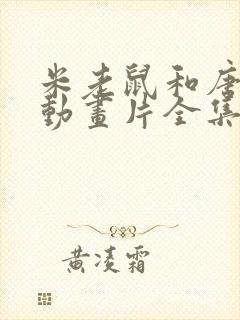 米老鼠和唐
動畫片全集
黃凌霜